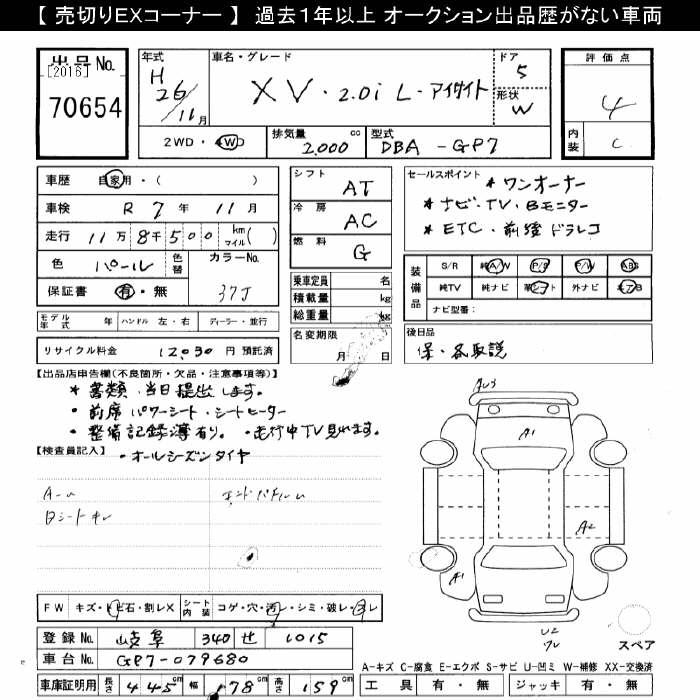 【 売切りEXコーナー 】 過去1年以上 オークション出品歴がない車両
出品No.
[2016]
70654
年式
H
26
/11月
車名・グレード
XV・2.0i L・アイサイト
ドア
5
形状
W
評価点
4
内装
C
2WD・4WD
排気量
2,000
cc
型式
DBA -GP7
車歴
自家用・( )
車検
R 7 年 11 月
走行
11万 8千 500
km
マイル
( )
色
パール
色替
カラーNo.
37J
保証書
有・無
モデル年式
年
ハンドル
左・右
ディーラー・並行
リサイクル料金
12030 円 預託済
シフト
AT
冷房
AC
燃料
G
乗車定員
名
積載量
kg
総重量
kg
名変期限
月 日
セールスポイント
* ワンオーナー
* ナビ・TV・Bモニター
* ETC・前後ドラレコ
装備品
S/R
純A/W
P/S
P/W
ABS
純TV
純ナビ
革シート
外ナビ
エアB
ナビ型番:
後日品
保・各取説
【出品店申告欄(不良箇所・欠品・注意事項等)】
* 書類、当日提出します。
・前席パワーシート・シートヒーター
・整備記録簿有り。・走行中TV見れます。
・オールシーズンタイヤ
【検査員記入】
AU3
A1
A2
A1
U2
スペア
FW
キズ・トビ石・割レX
シート内装
コゲ・穴・汚レ・シミ・破レ・スレ
登録No.
岐阜 340 せ 1015
車台No.
GP7-079680
車庫証明用
長さ
445
cm
幅
178
cm
高さ
159
cm
A-キズ C-腐食 E-エクボ S-サビ U-凹ミ W-補修 XX-交換済
工具
有・無
ジャッキ
有・無